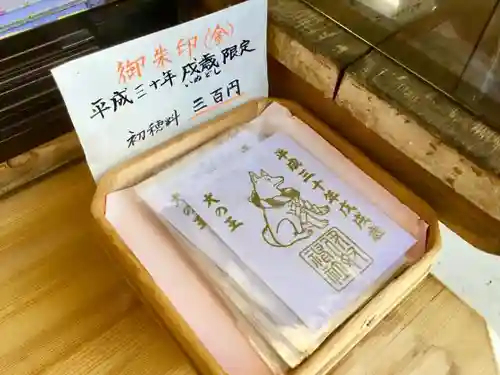 御朱印(金)
平成三十年戌歳限定
いぬどし
初穂料 三百円
平成三十年戊戌歳
犬の王
犬の王